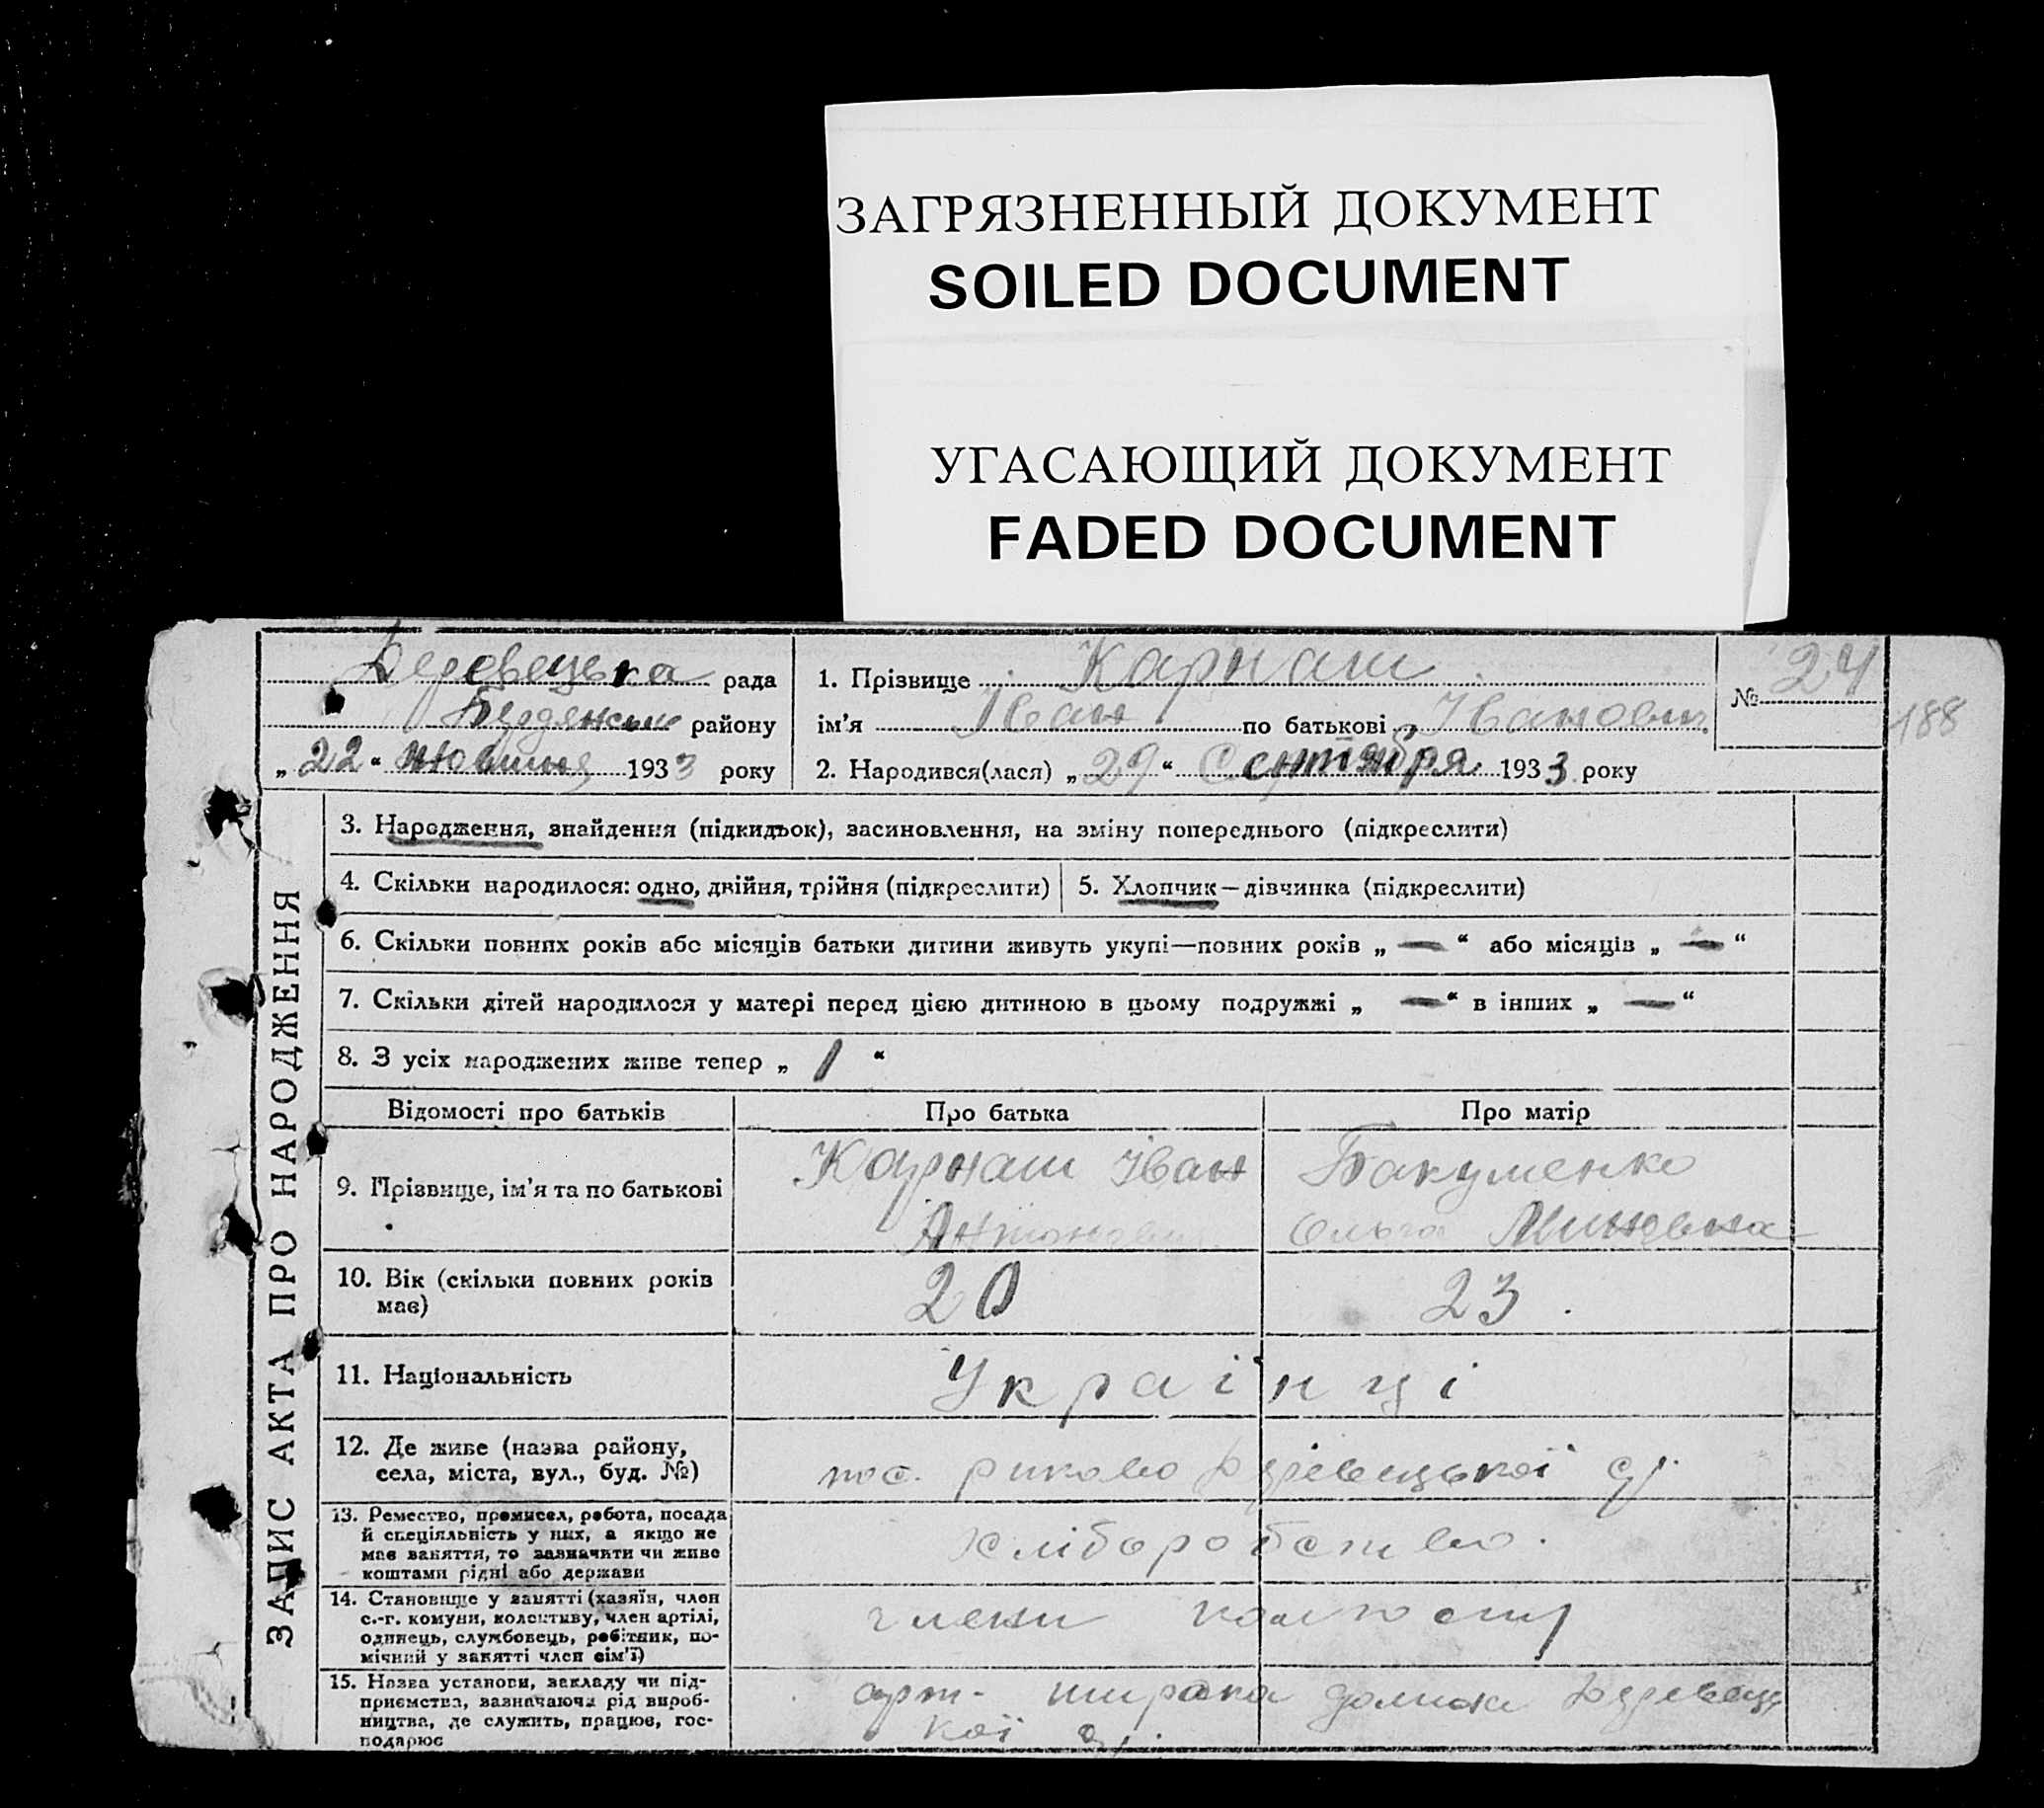 ЗАГРЯЗНЕННЫЙ ДОКУМЕНТ
SOILED DOCUMENT
УГАСАЮЩИЙ ДОКУМЕНТ
FADED DOCUMENT
рада
Бердянськ району
„22“ 1933 року
1. Прізвище Карнаш
ім'я Іван по батькові Іванович
2. Народився(лася) „29“ Сентября 1933 року
№ 24
188
ЗАПИС АКТА ПРО НАРОДЖЕННЯ
3. Народження, знайдення (підкидьок), засиновлення, на зміну попереднього (підкреслити)
4. Скільки народилося: одно, двійня, трійня (підкреслити)
5. Хлопчик—дівчинка (підкреслити)
6. Скільки повних років або місяців батьки дитини живуть укупі—повних років „ — “ або місяців „ — “
7. Скільки дітей народилося у матері перед цією дитиною в цьому подружжі „ — “ в інших „ — “
8. З усіх народжених живе тепер „ 1 “
Відомості про батьків Про батька Про матір
9. Прізвище, ім'я та по батькові
Карнаш Іван
Антонович
Бакуменко
Ольга
10. Вік (скільки повних років
має)
20
23
11. Національність
Українці
12. Де живе (назва району,
села, міста, вул., буд. №)
пос. риково
13. Ремество, промисел, робота, посада
й спеціяльність у них, а якщо не
має заняття, то зазначити чи живе
коштами рідні або держави
хліборобство.
14. Становище у занятті (хазяїн, член
с.-г. комуни, колективу, член артілі,
одинець, службовець, робітник, по-
мічний у занятті член сім'ї)
члени колгоспу
15. Назва установи, закладу чи під-
приємства, зазначаючи рід вироб-
ництва, де служить, працює, гос-
подарює
арт. широка долина
кої